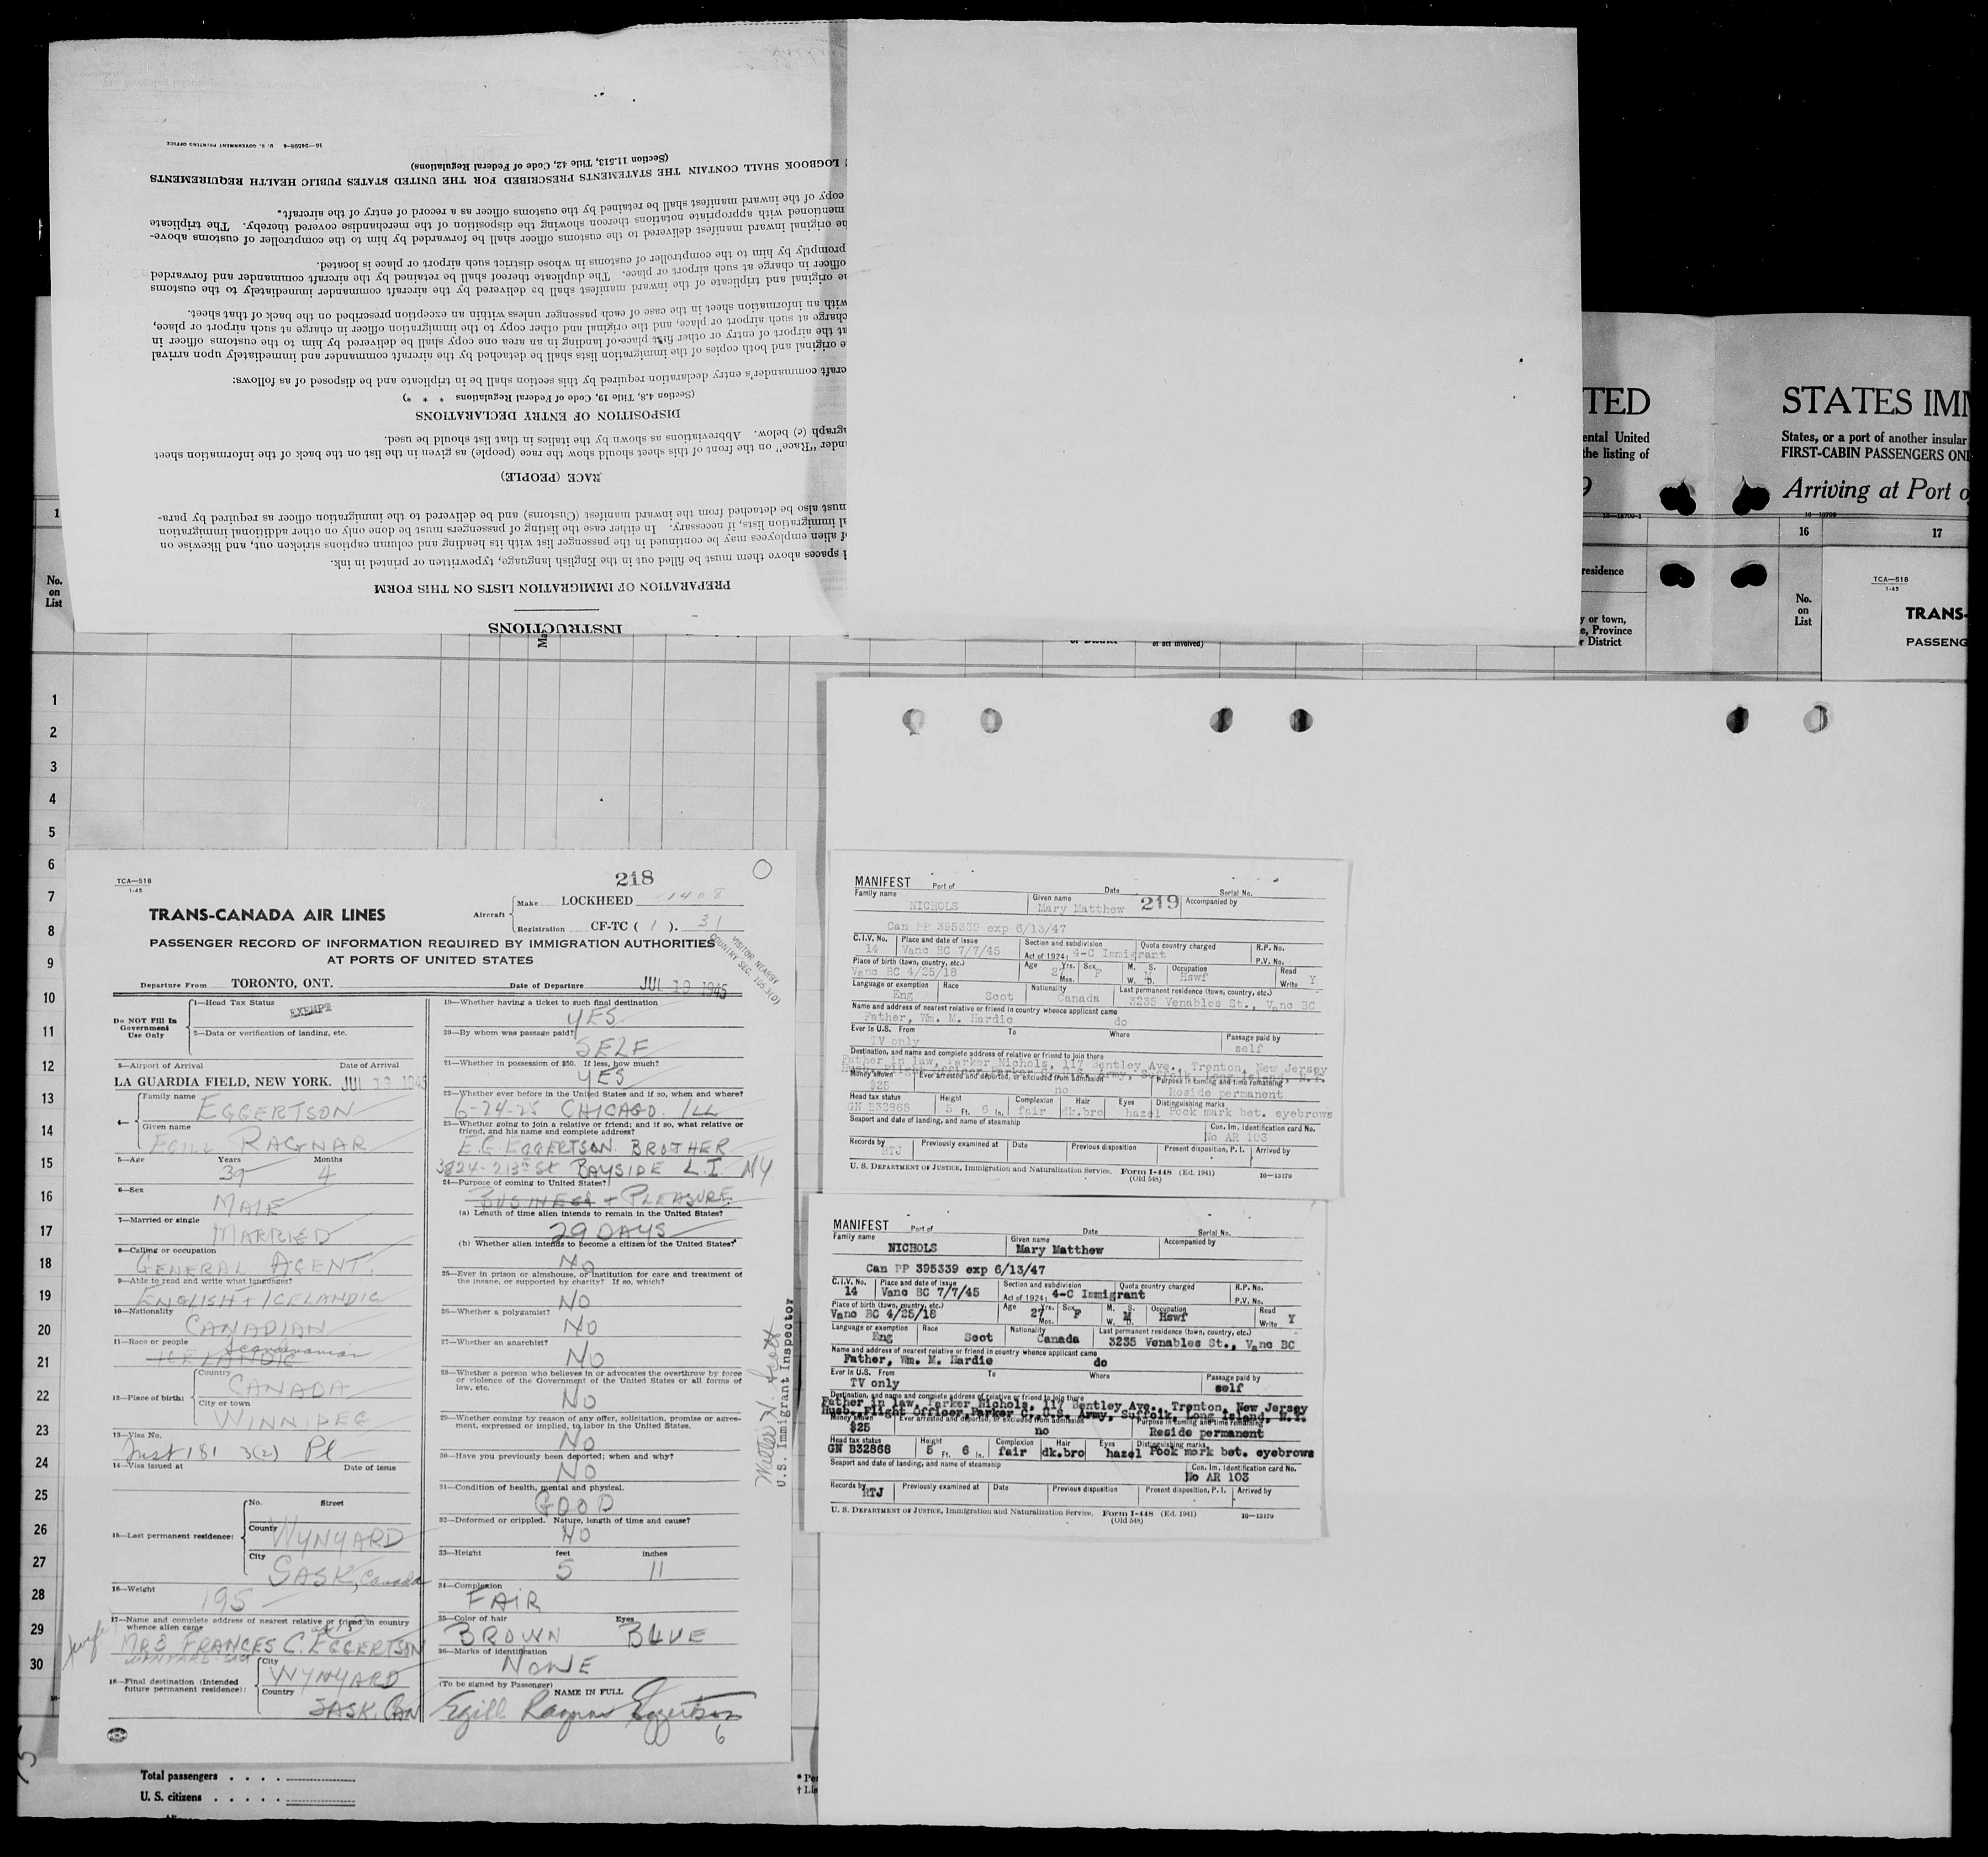 INSTRUCTIONS
PREPARATION OF IMMIGRATION LISTS ON THIS FORM
spaces above them must be filled out in the English language, typewritten or printed in ink.
of alien employees may be continued in the passenger list with its heading and column captions stricken out, and likewise on
al immigration lists, if necessary. In either case the listing of passengers must be done only on other additional immigration
must also be detached from the inward manifest (Customs) and be delivered to the immigration officer as required by para-
RACE (PEOPLE)
under "Race" on the front of this sheet should show the race (people) as given in the list on the back of the information sheet
agraph (c) below. Abbreviations as shown by the italics in that list should be used.
DISPOSITION OF ENTRY DECLARATIONS
(Section 4.8, Title 19, Code of Federal Regulations * * *)
craft commander's entry declaration required by this section shall be in triplicate and be disposed of as follows:
e original and both copies of the immigration lists shall be detached by the aircraft commander and immediately upon arrival
at the airport of entry or other first place of landing in an area one copy shall be delivered by him to the customs officer in
charge at such airport or place, and the original and other copy to the immigration officer in charge at such airport or place,
with an information sheet in the case of each passenger unless within an exception prescribed on the back of that sheet.
he original and triplicate of the inward manifest shall be delivered by the aircraft commander immediately to the customs
officer in charge at such airport or place. The duplicate thereof shall be retained by the aircraft commander and forwarded
promptly by him to the comptroller of customs in whose district such airport or place is located.
he original inward manifest delivered to the customs officer shall be forwarded by him to the comptroller of customs above-
mentioned with appropriate notations thereon showing the disposition of the merchandise covered thereby. The triplicate
copy of the inward manifest shall be retained by the customs officer as a record of entry of the aircraft.
LOGBOOK SHALL CONTAIN THE STATEMENTS PRESCRIBED FOR THE UNITED STATES PUBLIC HEALTH REQUIREMENTS
(Section 11.513, Title 42, Code of Federal Regulations)
16—24598-4 U. S. GOVERNMENT PRINTING OFFICE
TED
ental United
the listing of
16—18709-1
residence
y or town,
e, Province
r District
STATES IMM
States, or a port of another insular
FIRST-CABIN PASSENGERS ON
Arriving at Port o
16—18709
16 17
No.
on
List
TCA—518
1-45
TRANS-
PASSENG
1
No.
on
List
or act involved)
1
2
3
4
5
6
7
8
9
10
11
12
13
14
15
16
17
18
19
20
21
22
23
24
25
26
27
28
29
30
218
TCA—518
1-45
TRANS-CANADA AIR LINES
Aircraft Make LOCKHEED 1408
Registration CF-TC ( 1 ). 31
PASSENGER RECORD OF INFORMATION REQUIRED BY IMMIGRATION AUTHORITIES
AT PORTS OF UNITED STATES
VISITOR NEARBY
COUNTRY SEC. 105.3(D)
Departure From TORONTO, ONT. Date of Departure JUL 19 1945
Do NOT Fill In
Government
Use Only
1—Head Tax Status EXEMPT
2—Data or verification of landing, etc.
3—Airport of Arrival Date of Arrival
LA GUARDIA FIELD, NEW YORK. JUL 19 1945
4— Family name EGGERTSON
Given name EGILL RAGNAR
5—Age Years 39 Months 4
6—Sex MALE
7—Married or single MARRIED
8—Calling or occupation GENERAL AGENT.
9—Able to read and write what languages?
ENGLISH + ICELANDIC
10—Nationality CANADIAN
11—Race or people Scandinavian
ICELANDIC
12—Place of birth: Country CANADA
City or town WINNIPEG
13—Visa No.
Inst 181 3(2) Pl
14—Visa Issued at Date of issue
15—Last permanent residence: No. Street
County WYNYARD
City SASK, Canada
16—Weight 195
17—Name and complete address of nearest relative or friend in country
whence alien came
wife MRS FRANCES C. EGGERTSON
WYNYARD SASK
18—Final destination (Intended
future permanent residence): City WYNYARD
Country SASK. CAN
19—Whether having a ticket to such final destination
YES
20—By whom was passage paid?
SELF
21—Whether in possession of $50. If less, how much?
YES
22—Whether ever before in the United States and if so, when and where?
6-24-25 CHICAGO. ILL
23—Whether going to join a relative or friend; and if so, what relative or
friend, and his name and complete address?
E.G EGGERTSON BROTHER
3824-213th St BAYSIDE L.I. NY
24—Purpose of coming to United States?
BUSINESS + PLEASURE
(a) Length of time alien intends to remain in the United States?
29 DAYS
(b) Whether alien intends to become a citizen of the United States?
No
25—Ever in prison or almshouse, or institution for care and treatment of
the insane, or supported by charity? If so, which?
NO
26—Whether a polygamist?
NO
27—Whether an anarchist?
NO
28—Whether a person who believes in or advocates the overthrow by force
or violence of the Government of the United States or all forms of
law, etc.
NO
29—Whether coming by reason of any offer, solicitation, promise or agree-
ment, expressed or implied, to labor in the United States.
NO
30—Have you previously been deported; when and why?
NO
31—Condition of health, mental and physical.
GOOD
32—Deformed or crippled. Nature, length of time and cause?
NO
33—Height feet 5 inches 11
34—Complexion
FAIR
35—Color of hair Eyes
BROWN BLUE
36—Marks of identification
NONE
(To be signed by Passenger) NAME IN FULL
Egill Ragnar Eggertson
6
Walter H. Scott
U.S. Immigrant Inspector
Total passengers . . . .
U. S. citizens . . . . .
* Pe
† Lis
MANIFEST Port of Date Serial No.
Family name NICHOLS Given name Mary Matthew 219 Accompanied by
Can PP 395339 exp 6/13/47
C.I.V. No. 14 Place and date of issue Vanc BC 7/7/45 Section and subdivision Act of 1924: 4-C Immigrant Quota country charged R.P. No. P.V. No.
Place of birth (town, country, etc.) Vanc BC 4/25/18 Age 27 Yrs. Mos. Sex F M. S. W. D. M Occupation Hswf Read Write Y
Language or exemption Eng Race Scot Nationality Canada Last permanent residence (town, country, etc.) 3235 Venables St., Vanc BC
Name and address of nearest relative or friend in country whence applicant came
Father, Wm. M. Hardie do
Ever in U.S. From To Where Passage paid by
TV only self
Destination, and name and complete address of relative or friend to join there
Father in law, Parker Nichols, 117 Bentley Ave., Trenton, New Jersey
Husb. Flight Officer Parker C., U.S. Army, Suffolk, Long Island, N.Y.
Money shown $25 Ever arrested and deported, or excluded from admission no Purpose in coming and time remaining Reside permanent
Head tax status GN B32868 Height 5 Ft. 6 In. Complexion fair Hair dk.bro Eyes hazel Distinguishing marks Pock mark bet. eyebrows
Seaport and date of landing, and name of steamship Con. Im. Identification card No.
No AR 103
Records by RTJ Previously examined at Date Previous disposition Present disposition, P. I. Arrived by
U. S. DEPARTMENT OF JUSTICE, Immigration and Naturalization Service. Form I-448 (Ed. 1941) 16—13179
(Old 548)
MANIFEST Port of Date Serial No.
Family name NICHOLS Given name Mary Matthew Accompanied by
Can PP 395339 exp 6/13/47
C.I.V. No. 14 Place and date of issue Vanc BC 7/7/45 Section and subdivision Act of 1924: 4-C Immigrant Quota country charged R.P. No. P.V. No.
Place of birth (town, country, etc.) Vanc BC 4/25/18 Age 27 Yrs. Mos. Sex F M. S. W. D. M Occupation Hswf Read Write Y
Language or exemption Eng Race Scot Nationality Canada Last permanent residence (town, country, etc.) 3235 Venables St., Vanc BC
Name and address of nearest relative or friend in country whence applicant came
Father, Wm. M. Hardie do
Ever in U.S. From To Where Passage paid by
TV only self
Destination, and name and complete address of relative or friend to join there
Father in law, Parker Nichols, 117 Bentley Ave., Trenton, New Jersey
Husb. Flight Officer Parker C., U.S. Army, Suffolk, Long Island, N.Y.
Money shown $25 Ever arrested and deported, or excluded from admission no Purpose in coming and time remaining Reside permanent
Head tax status GN B32868 Height 5 Ft. 6 In. Complexion fair Hair dk.bro Eyes hazel Distinguishing marks Pock mark bet. eyebrows
Seaport and date of landing, and name of steamship Con. Im. Identification card No.
No AR 103
Records by RTJ Previously examined at Date Previous disposition Present disposition, P. I. Arrived by
U. S. DEPARTMENT OF JUSTICE, Immigration and Naturalization Service. Form I-448 (Ed. 1941) 16—13179
(Old 548)